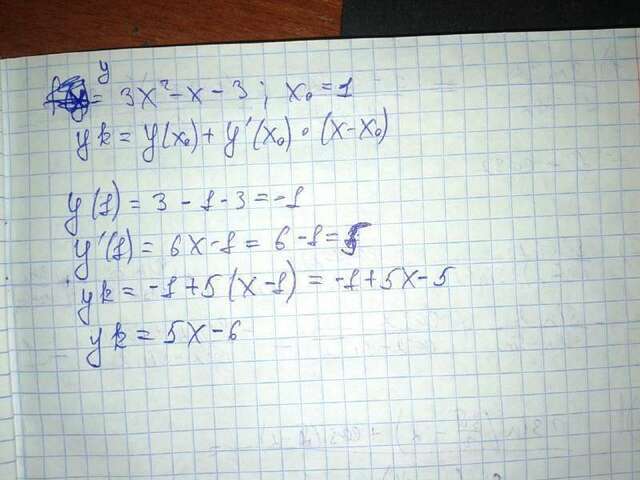 y = 3x² - x - 3; x₀ = 1
yk = y(x₀) + y'(x₀) · (x - x₀)
y(1) = 3 - 1 - 3 = -1
y'(1) = 6x - 1 = 6 - 1 = 5
yk = -1 + 5(x - 1) = -1 + 5x - 5
yk = 5x - 6